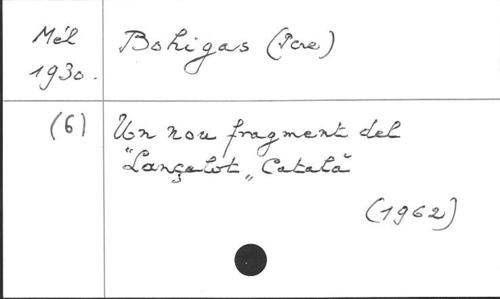 Mél
1930.
Bohigas (Pere)
(6)
Un nou fragment del
"Lançalot" Català
(1962)